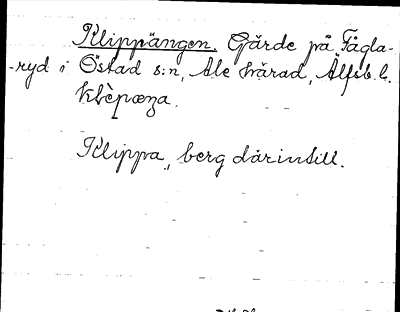 Klippängen. Gärde på Fågla-
-ryd i Östad s:n, Ale härad, Älfsb. l.
Klippa, berg därintill.